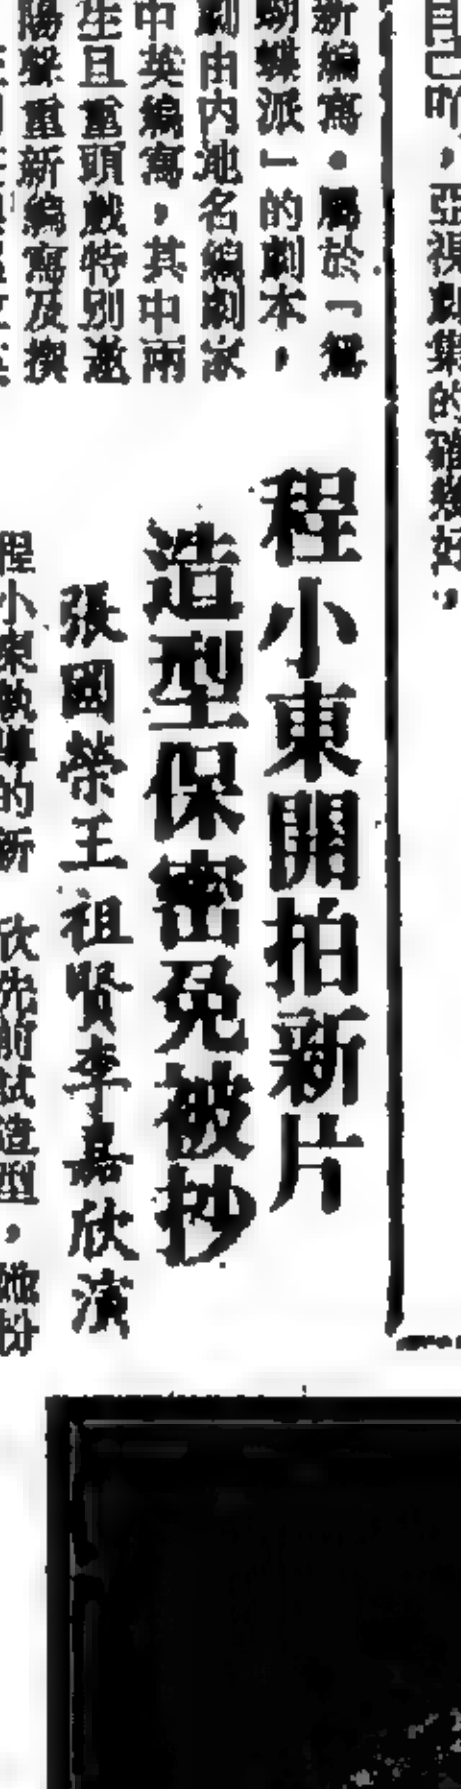 自己吖，亞視劇集的確幾好，
新編寫。屬於「鴛
蝴蝶派」的劇本，
劇由內地名編劇家
中英編寫，其中兩
生旦重頭戲特別邀
陽聲重新編寫及撰
程小東開拍新片
造型保密免被抄
張國榮王祖賢李嘉欣演
程小東執導的新
欣先前試造型，她扮